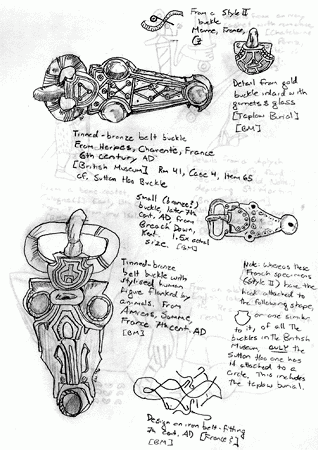 From a Style II
buckle
Marne, France,
Detail from gold
buckle inlaid with
garnets & glass
[Taplow Burial]
[BM]
Tinned-bronze belt buckle
From Herpes, Charente, France
6th century AD
[British Museum] Rm 41, Case 4, Item 65
cf. Sutton Hoo Buckle
Small (bronze?)
buckle later 7th
Cent. AD from
Breach Down,
Kent. 1.5x actual
size. [BM]
Tinned-bronze
belt buckle with
stylised human
figure flanked by
animals. From
Amiens, Somme,
France. 7th cent. AD
[BM]
Note: whereas these
French specimens
(Style II) have the
attached to
the following shape,
or one similar
to it, of all the
buckles in the British
Museum ONLY the
Sutton Hoo one has
it attached to a
circle. This includes
the Taplow burial.
Design on iron belt-fitting
7th Cent. AD [France?]
[BM]